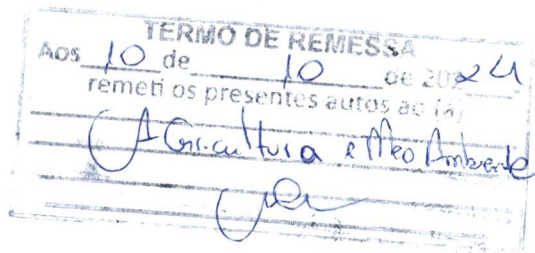 TERMO DE REMESSA
Aos 10 de 10 de 2024
remeti os presentes autos ao (a)
Agricultura e Meo Ambiente